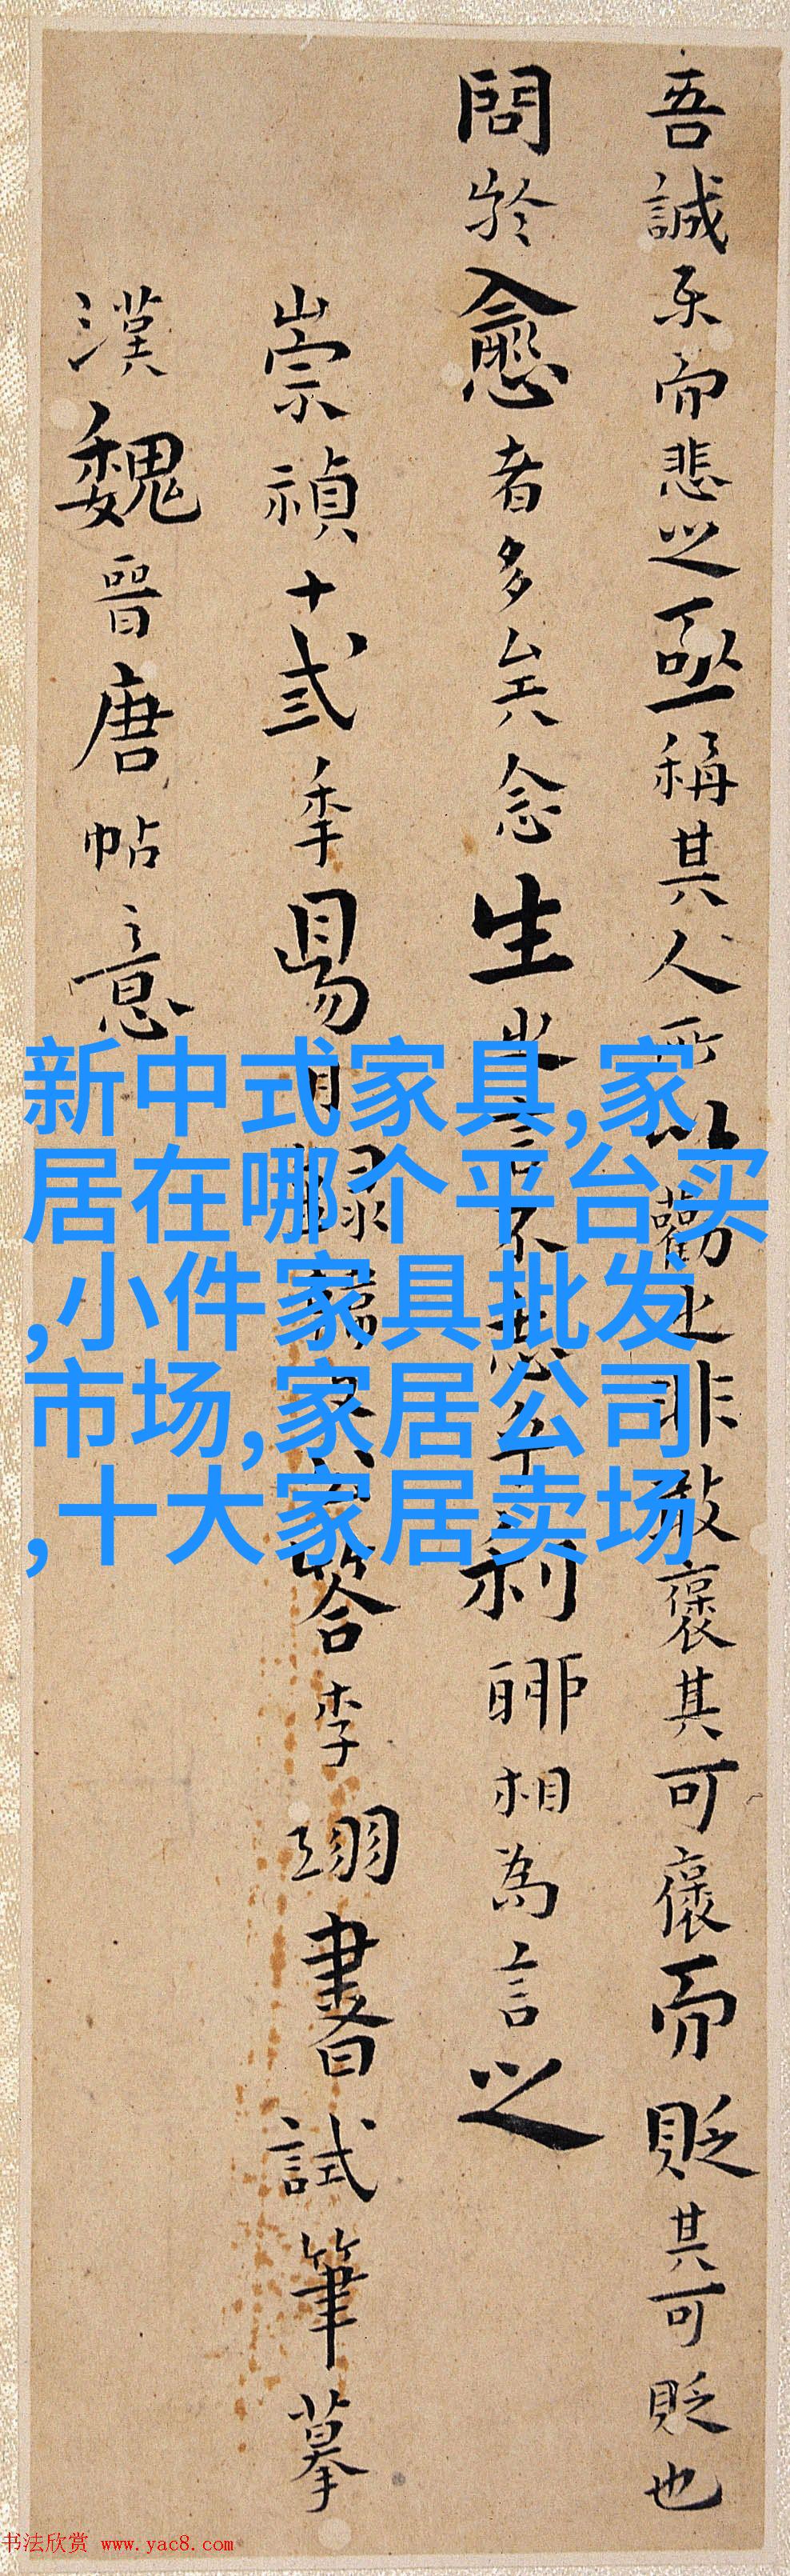 吾誠而悲之亟稱其人所以勸之非敢褒其可褒而貶其可貶也
問於愈者多矣念生之言不志乎利聊相為言之
崇禎十弎秊昜月錄韓文公答李翊書試筆摹
漢魏晉唐帖意
新中式家具,家
居在哪个平台买
,小件家具批发
市场,家居公司
,十大家居卖场
书法欣赏 www.yac8.com